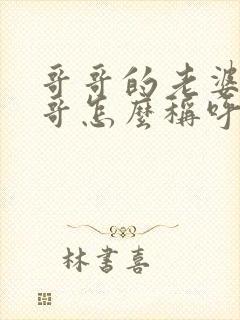 哥哥的老婆
哥怎麼稱呼
林書喜